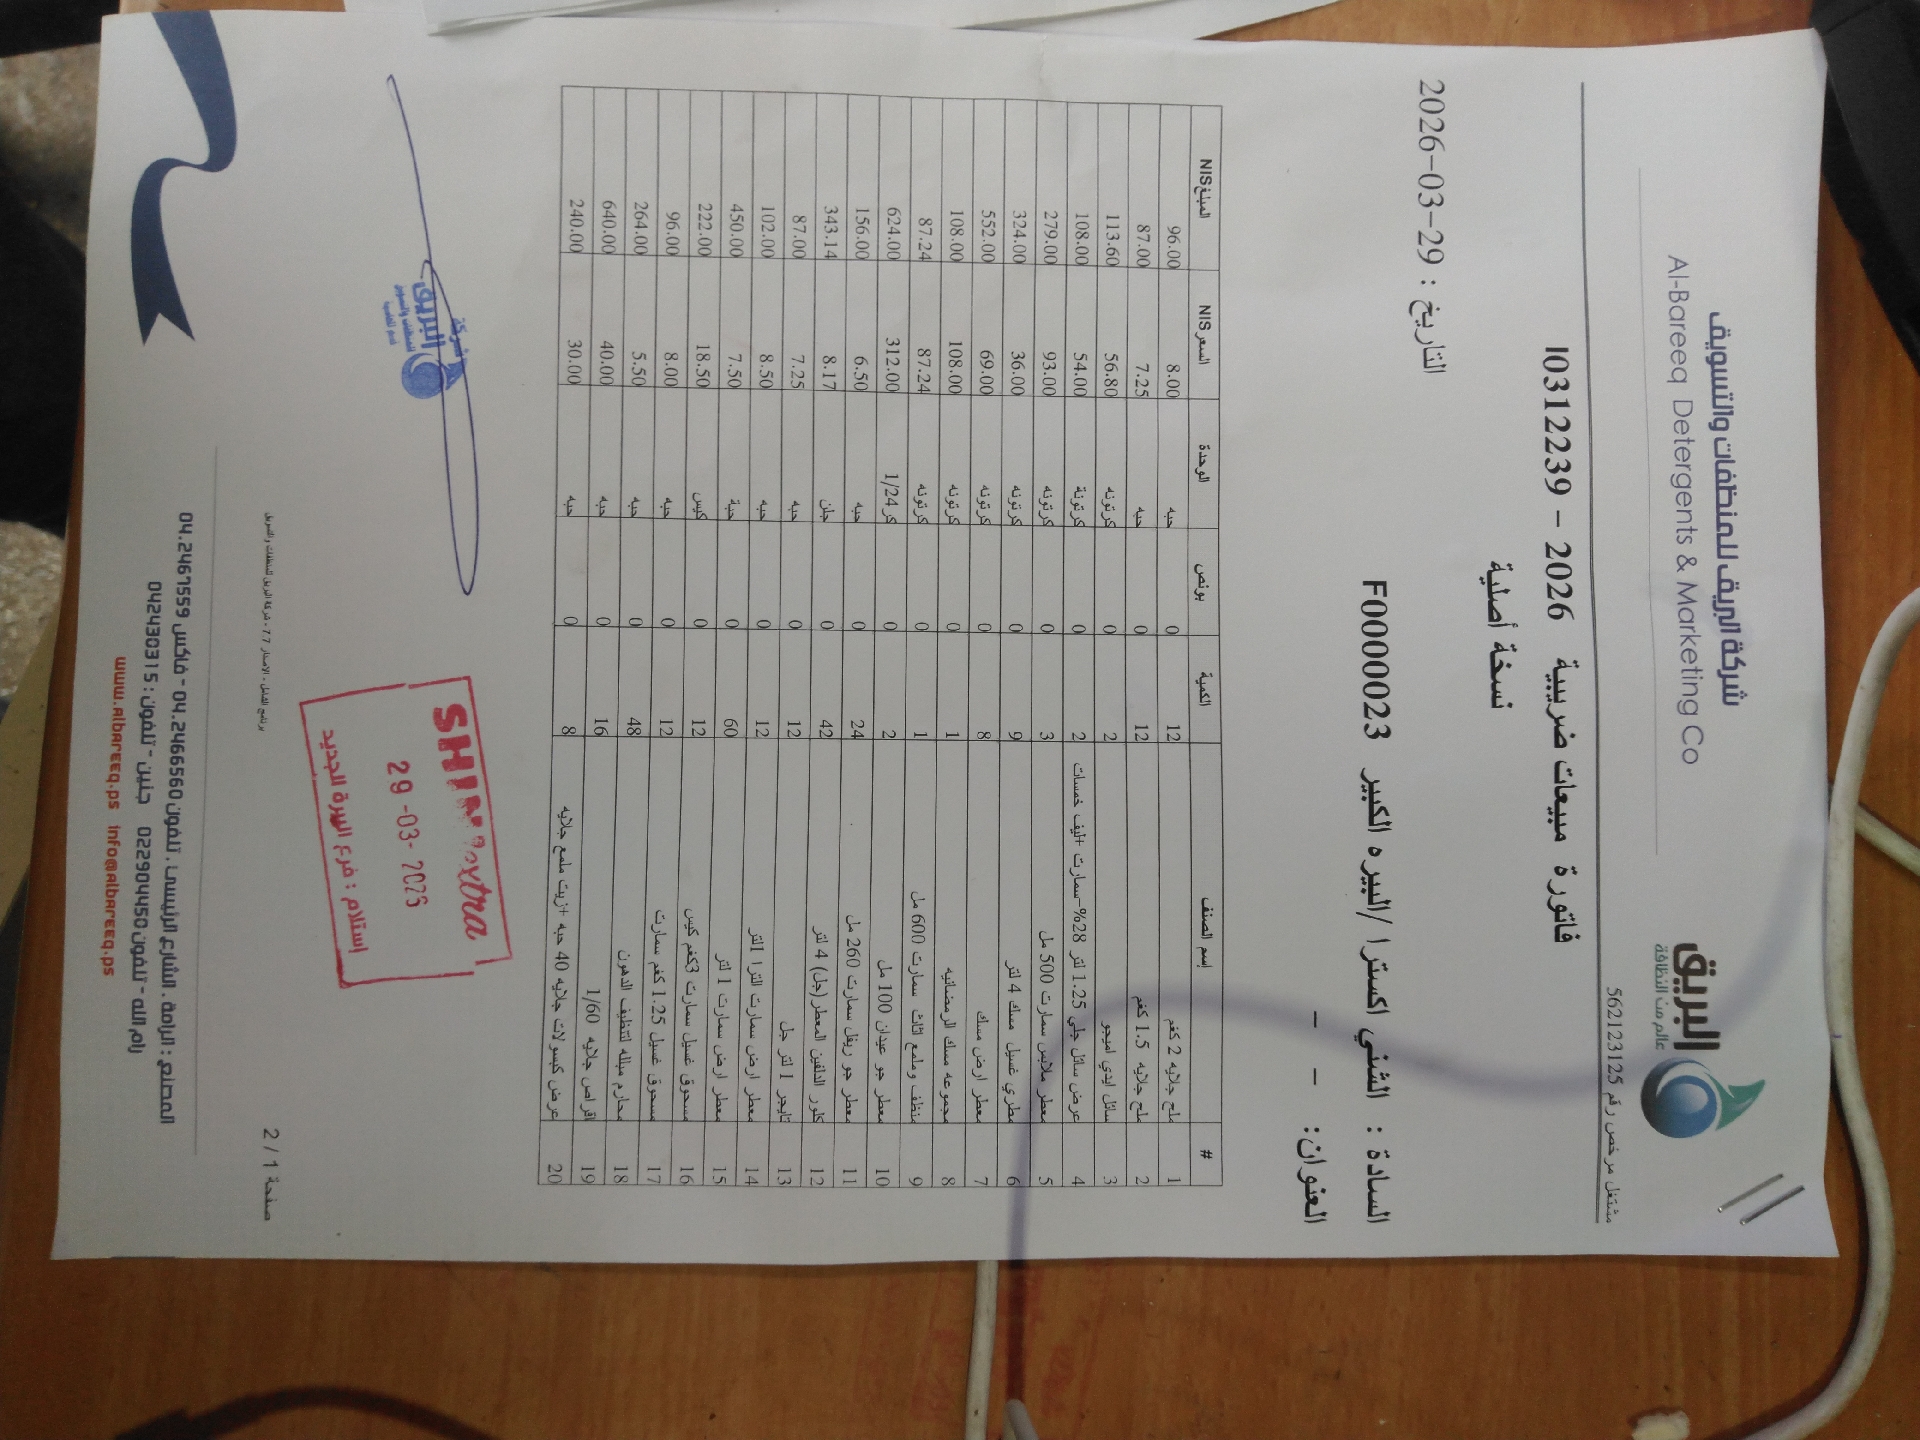 شركة البريق للمنظفات والتسويق
Al-Bareeq Detergents & Marketing Co
البريق
عالم من النظافة
مشتغل مرخص رقم 562123125
فاتورة مبيعات ضريبية 2026 - I0312239
نسخة أصلية
التاريخ : 29-03-2026
السادة : الشني اكسترا /البيره الكبير F0000023
العنوان: - -
# إسم الصنف الكمية بونص الوحدة السعر NIS المبلغ NIS
1 ملح جلايه 2 كغم 12 0 حبه 8.00 96.00
2 ملح جلايه 1.5 كغم 12 0 حبه 7.25 87.00
3 سائل ايدي اميجو 2 0 كرتونه 56.80 113.60
4 عرض سائل جلي 1.25 لتر 28%-سمارت +ليف خمسات 2 0 كرتونة 54.00 108.00
5 معطر ملابس سمارت 500 مل 3 0 كرتونه 93.00 279.00
6 مطري غسيل مسك 4 لتر 9 0 كرتونه 36.00 324.00
7 معطر ارض مسك 8 0 كرتونه 69.00 552.00
8 مجموعه مسك الرمضانيه 1 0 كرتونه 108.00 108.00
9 منظف وملمع اثاث سمارت 600 مل 1 0 كرتونه 87.24 87.24
10 معطر جو عيدان 100 مل 2 0 كز 1/24 312.00 624.00
11 معطر جو ريفل سمارت 260 مل 24 0 حبه 6.50 156.00
12 كلور الدلفين المعطر(جل) 4 لتر 42 0 جلن 8.17 343.14
13 تايجر 1 لتر جل 12 0 حبه 7.25 87.00
14 معطر ارض سمارت الترا 1لتر 12 0 حبه 8.50 102.00
15 معطر ارض سمارت 1 لتر 60 0 حبة 7.50 450.00
16 مسحوق غسيل سمارت 3كغم كيس 12 0 كيس 18.50 222.00
17 مسحوق غسيل 1.25 كغم سمارت 12 0 حبه 8.00 96.00
18 محارم مبلله لتنظيف الدهون 48 0 حبه 5.50 264.00
19 اقراص جلايه 1/60 16 0 حبه 40.00 640.00
20 عرض كبسولات جلايه 40 حبه +زيت ملمع جلايه 8 0 حبه 30.00 240.00
شركة
البريق
للمنظفات والتسويق
SHINI extra
29 -03- 2026
إستلام : فرع البيرة الجديد
صفحة 1 / 2
برنامج الشامل - الاصدار 7.7 - شركة البريق للمنظفات والتسويق
المصنع : الرامة . الشارع الرئيسي . تلفون 04.2466560 - فاكس 04.2467559
رام الله - تلفون 022904450 جنين - تلفون : 042430315
www.albareeq.ps info@albareeq.ps